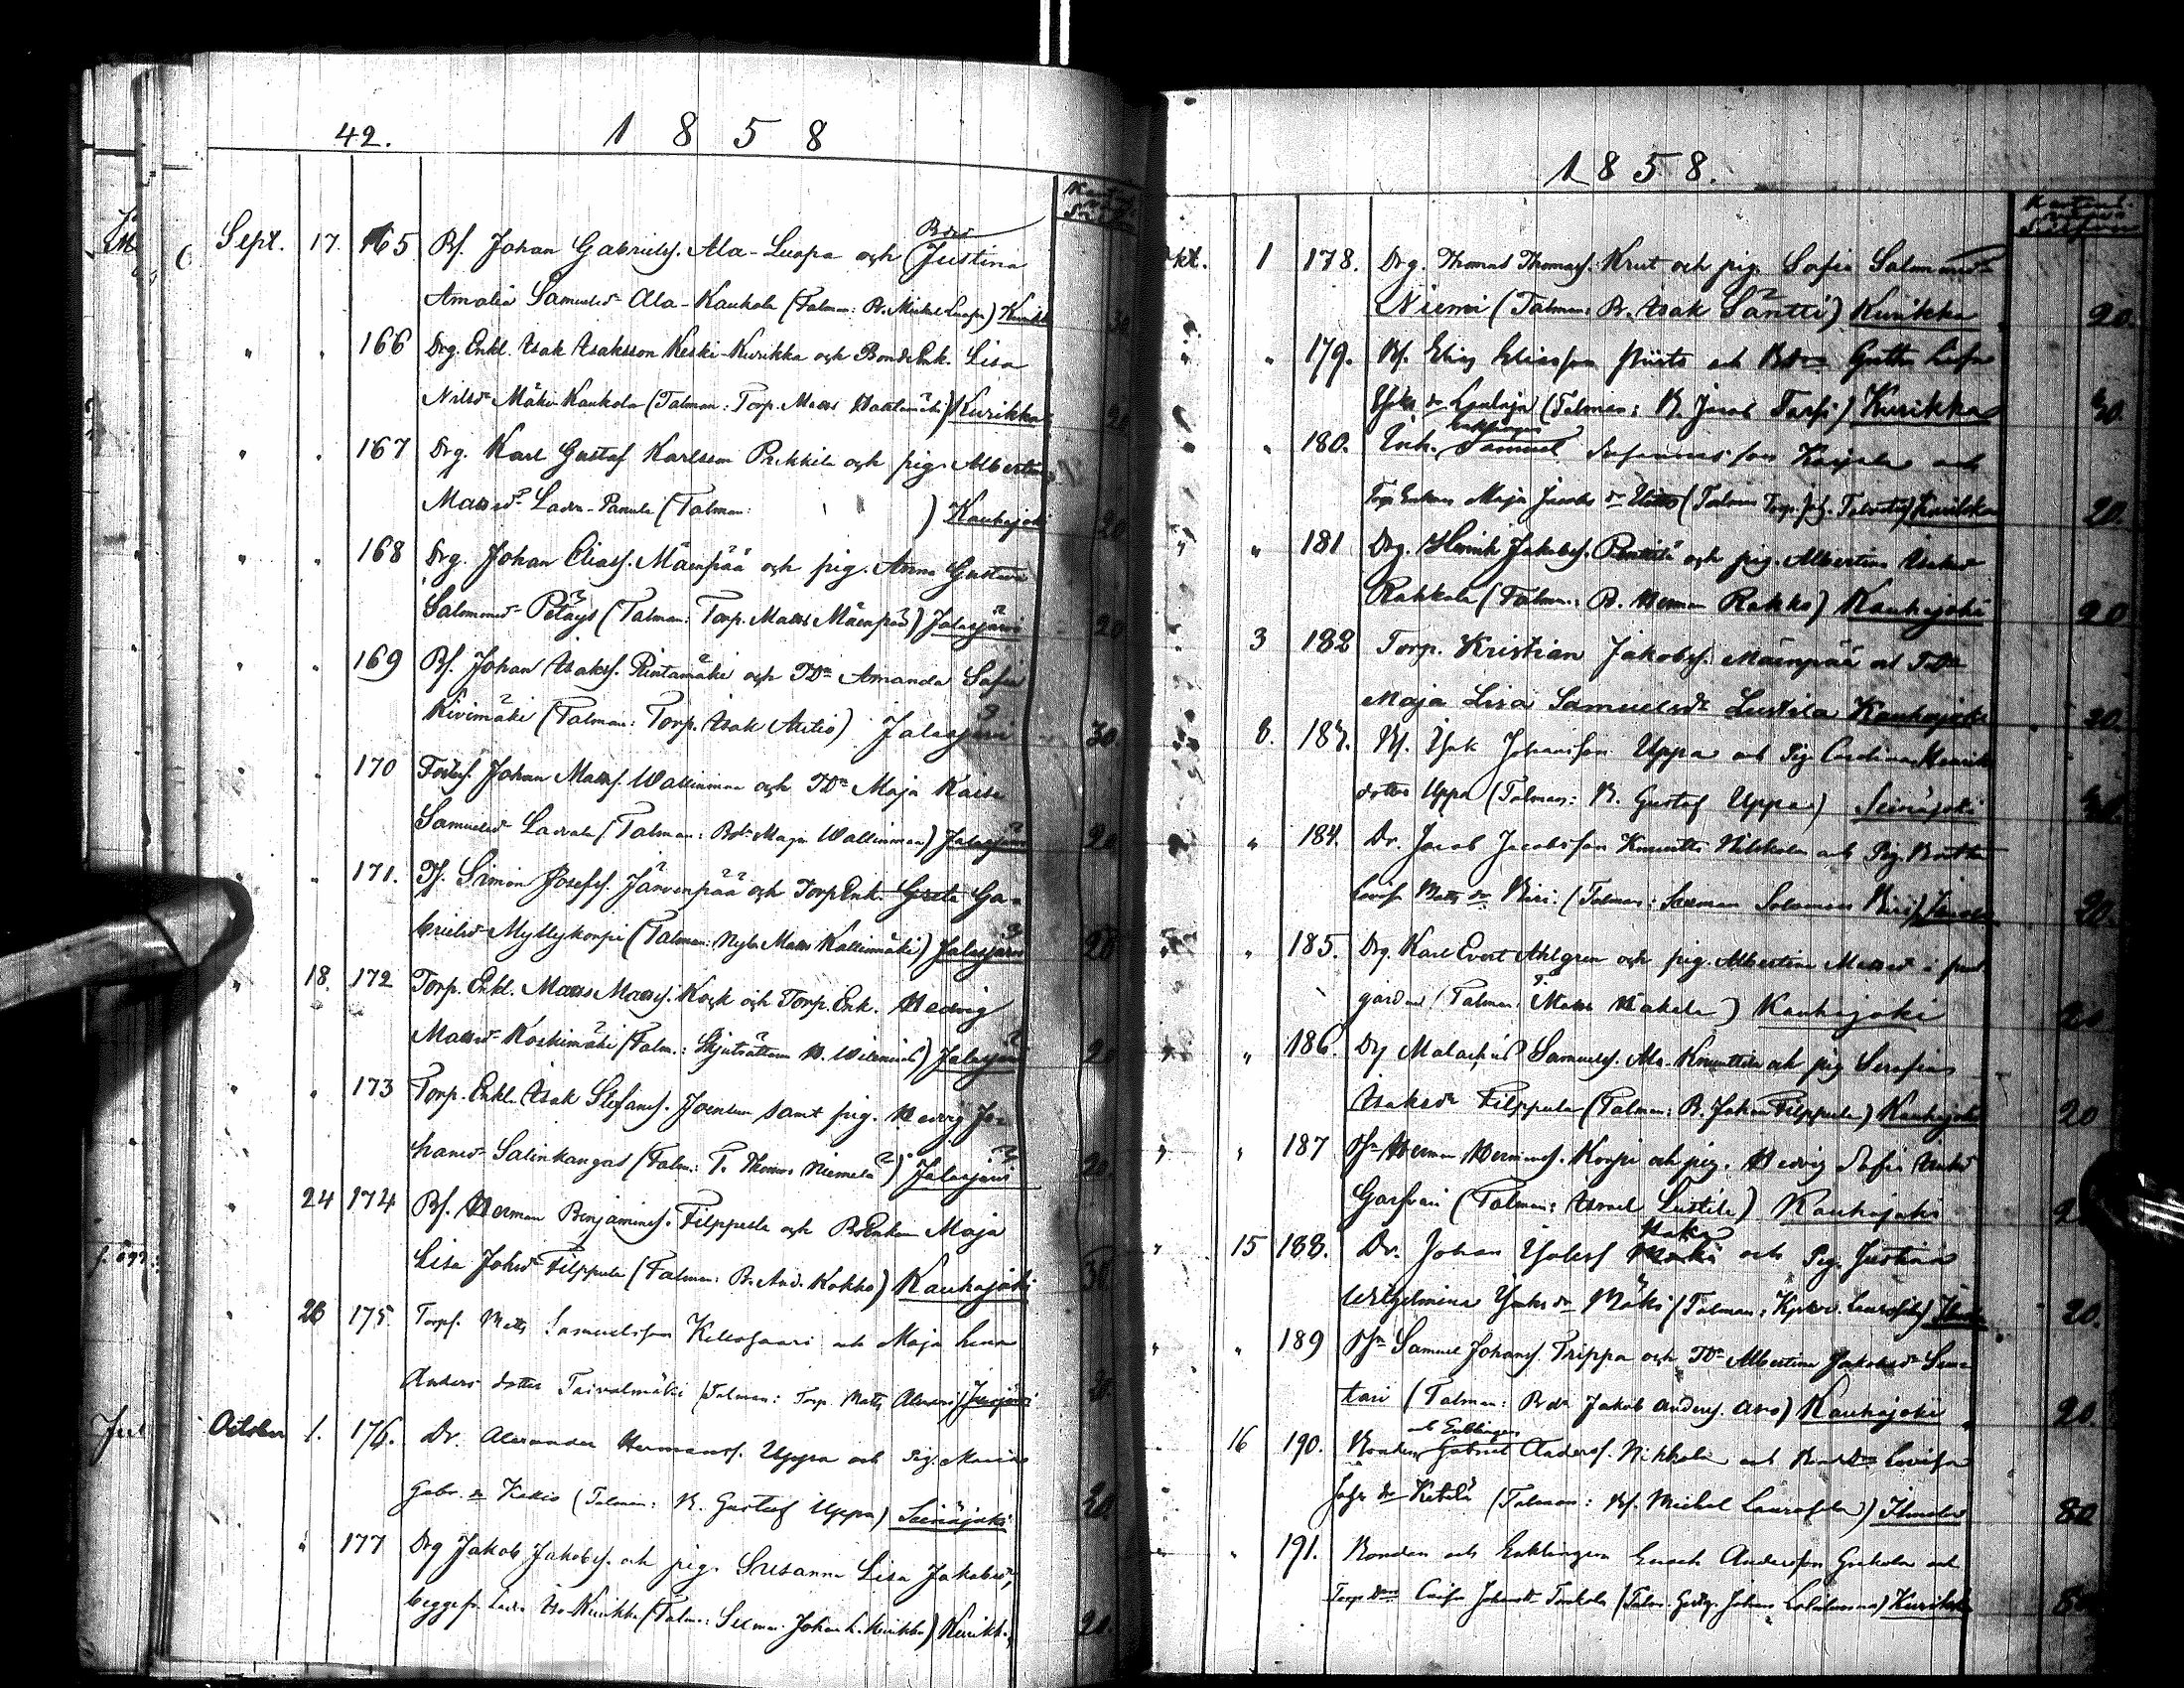 42. 1858
Sept. 17. 165 Bs. Johan Gabrielss. Ala-Luopa och Bdr Justina
Amalia Samuelsdr Ala-Kaukola (Talman: B. Mickel Luopa) Kurikka 30
" " 166 Drg. Enkl. Isak Isaksson Keski-Kurikka och BondeEnk. Lisa
Nilsdr Mäki-Kaukola (Talman: Torp. Matts) Kurikka 20
" " 167 Drg. Karl Gustaf Karlsson Pukkila och pig. Albertina
Mattsdr Ladva-Panula (Talman: ) Kauhajoki 20
" " 168 Drg. Johan Eliass. Mäenpää och pig. Anna Gustava
Salomonsdr Petäys (Talman: Torp. Matts Mäenpää) Jalasjärvi 20
" " 169 Bs. Johan Isakss. Rintamäki och TDr Amanda Sofia
Kivimäki (Talman: Torp. Isak) Jalasjärvi 30
" " 170 Johan Matss. Wallinmaa och TDr Maja Kaisa
Samuelsdr Ladvala (Talman: Wallinmaa) Jalasjärvi 20
" " 171. Ts. Simon Josefs. Järvenpää och TorpEnk. Greta Ga-
brielsdr Myllykorpi (Talman: Nyb. Matts Kallinmäki) Jalasjärvi 20
" 18. 172 Torp. Enkl. Matts Mattss. Kock och Torp. Enk. Hedvig
Mattsdr Koskimäki (Talm.: H. Wilenius) Jalasjärvi 20
" " 173 Torp. Enkl. Isak Stefanss. samt pig. Hedvig Jo-
hansdr Salinkangas (Talm.: T. Thomas Niemelä) Jalasjärvi 20
" 24 174 Bs. Herman Benjaminss. Filppula och BEnkan Maja
Lisa Johsdr Filppula (Talman: B. And. Kokko) Kauhajoki 30
" 26 175 Torps. Matts Samuelsson och Maja Lena
Anders dotter Taivalmäki (Talman: Torp. Matts) 20
October 1. 176. Dr. Alexander Hermanss. Uppa och Pig. Maria
Gabr. dr (Talman: B. Gustaf Uppa) Seinäjoki 20.
" 177 Drg Jakob Jakobss. och pig. Susanna Lisa Jakobsdr,
begge fr. Kurikka (Talm: Johan L. Kurikka) Kurikka 20.
1858.
Okt. 1 178. Drg. Thomas Thomass. Krut och pig. Sofia Salomonsdr
Niemi (Talman: B. Isak Säntti) Kurikka 20.
" " 179. Bs. Elias Eliasson och Bdr Greta Lisa
(Talman: B. Jacob) Kurikka
" 180. Enkl. Enklingen Samuel och
Torp Enkan Maja Jacobs dr (Talman Torp.) Kurikka 20.
" " 181 Drg. Henrik Jakobss. Penttilä och pig. Albertina Isaksdr
Rakkola (Talm.: B. Herman Rakko) Kauhajoki 20
" 3 182 Torp. Kristian Jakobss. Mäenpää och TDr
Maja Lisa Samuelsdr Lustila Kauhajoki 20.
6. 183. Bs. Isak Johansson Uppa och Pig Carolina Henrik
dotter Uppa (Talman: B. Gustaf Uppa) Seinäjoki
" 184. Dr. Jacob Jacobsson och Pig.
Lovisa Matts dr (Talman: Salomon) 20.
" " 185. Drg. Karl Evert Ahlgren och pig. Albertina Mattsdr i
gården (Talman: Matts) Kauhajoki 20
" " 186. Drg Malachias Samuelss. Ala-Knuuttila och pig Serafina
Isaksdr Filppula (Talman: B. Johan Filppula) Kauhajoki 20
" " 187 Herman Hermanss. Korpi och pig. Hedvig Sofia Isaksdr
(Talman: Israel Lustila) Kauhajoki 20
" 15 188. Dr. Johan och Pig. Justina
Wilhelmina Isaks dr Mäki (Talman:) 20.
" " 189 Samuel Johanss. Trippa och TDr Albertina Jakobsdr San-
tari (Talman: Bdr Jakob Anderss. Aro) Kauhajoki 20.
16 190. Bonden och Enklingen Gabriel Anderss. Nikkola och Lovisa
(Talman: Bs. Michel Laurosela) Ilmola 80
" 191. Bonden och Enklingen Enoch Andersson och
(Talm. Johan) Kurikka 80